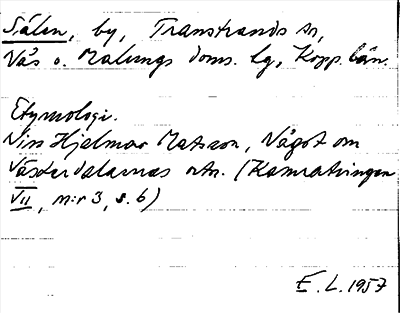 Sälen, by, Transtrands sn,
Näs o. Malungs doms. lg, Kopp. län.
Etymologi.
Niss Hjalmar Matsson, Något om
Västerdalarnas ortn. (Kamratringen
VII, n:r 3, s. 6)
E. L. 1957